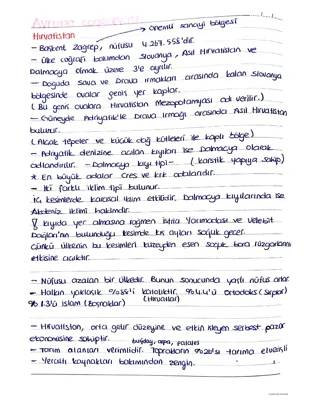 Avrupa Coğrafyası
Hırvatistan → önemli sanayi bölgesi
- Başkent Zagrep, nüfusu 4.267.558'dir.
- Ülke coğrafi bakımdan Slovanya, Asıl Hırvatistan ve
Dalmaçya olmak üzere 3'e ayrılır.
- Doğuda Sava ve Drava ırmakları arasında kalan Slovanya
bölgesinde ovalar geniş yer kaplar.
( Bu geniş ovalara Hırvatistan Mezopotamyası adı verilir.)
- Güneyde Adriyatik'le Drava ırmağı arasında Asıl Hırvatistan
bulunur.
(Alçak tepeler ve küçük dağ kütleleri ile kaplı bölge)
- Adriyatik denizine açılan kıyıları ise Dalmaçya olarak
adlandırılır. - Dalmaçya kıyı tipi - ( karstik yapıya sahip)
* En büyük adalar Cres ve Kırk adalarıdır.
- İki farklı iklim tipi bulunur.
İç kesimlerde karasal iklim etkilidir, Dalmaçya kıyılarında ise
Akdeniz iklimi hakimdir.
kıyıda yer almasına rağmen İstria Yarımadası ve Velebit
Dağları'nın bulunduğu kesimde kış ayları soğuk geçer.
Çünkü ülkenin bu kesimleri kuzeyden esen soğuk bora rüzgarlarının
etkisine açıktır.
- Nüfusu azalan bir ülkedir. Bunun sonucunda yaşlı nüfus artar.
- Halkın yaklaşık %86'i katoliktir. %4.4'ü Ortodoks (Sırplar)
(Hırvatlar)
%1.3'ü islam (Boşnaklar)
- Hırvatistan, orta gelir düzeyine ve etkin işleyen serbest pazar
ekonomisine sahiptir.
buğday, arpa, patates
- Tarım alanları verimlidir. Toprakların %26'sı tarıma elverişli
- Yeraltı kaynakları bakımından zengin.